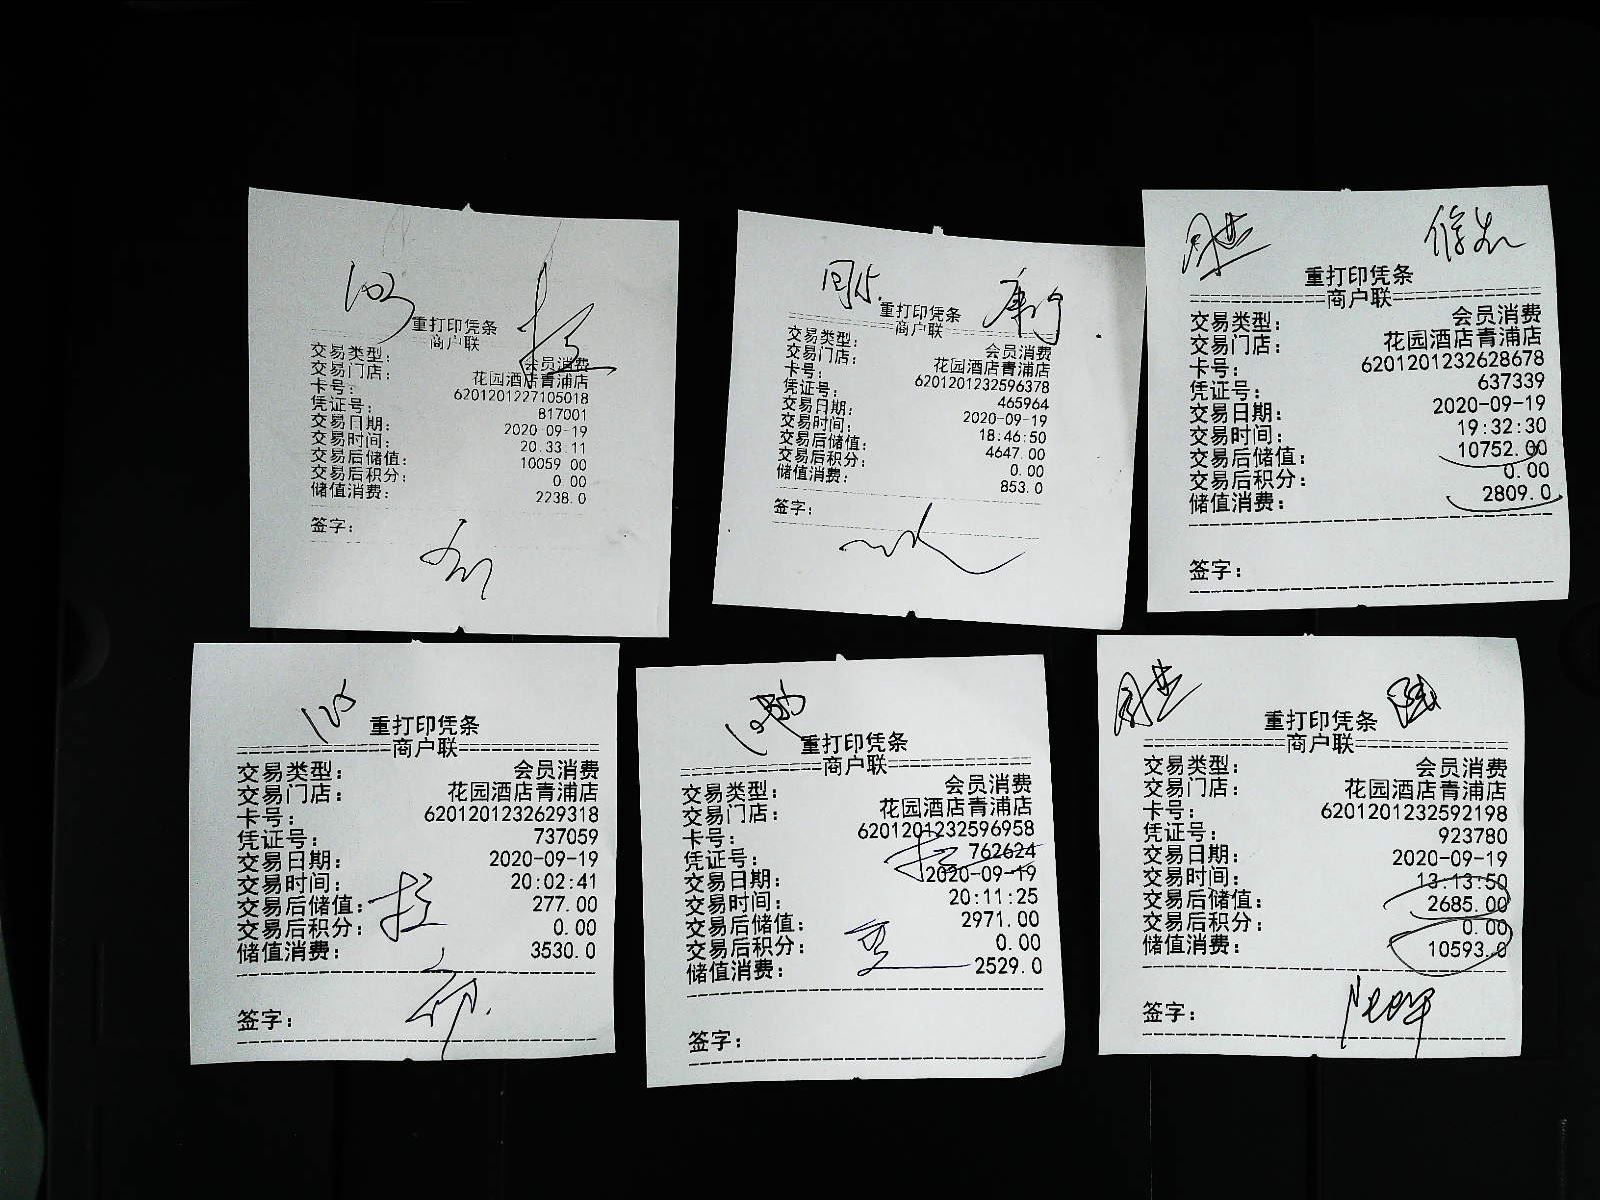 重打印凭条
商户联
交易类型： 会员消费
交易门店： 花园酒店青浦店
卡号： 6201201227105018
凭证号： 817001
交易日期： 2020-09-19
交易时间： 20:33:11
交易后储值： 10059.00
交易后积分： 0.00
储值消费： 2238.0
签字：
重打印凭条
商户联
交易类型： 会员消费
交易门店： 花园酒店青浦店
卡号： 6201201232596378
凭证号： 465964
交易日期： 2020-09-19
交易时间： 18:46:50
交易后储值： 4647.00
交易后积分： 0.00
储值消费： 853.0
签字：
重打印凭条
商户联
交易类型： 会员消费
交易门店： 花园酒店青浦店
卡号： 6201201232628678
凭证号： 637339
交易日期： 2020-09-19
交易时间： 19:32:30
交易后储值： 10752.00
交易后积分： 0.00
储值消费： 2809.0
签字：
重打印凭条
商户联
交易类型： 会员消费
交易门店： 花园酒店青浦店
卡号： 6201201232629318
凭证号： 737059
交易日期： 2020-09-19
交易时间： 20:02:41
交易后储值： 277.00
交易后积分： 0.00
储值消费： 3530.0
签字：
重打印凭条
商户联
交易类型： 会员消费
交易门店： 花园酒店青浦店
卡号： 6201201232596958
凭证号： 762624
交易日期： 2020-09-19
交易时间： 20:11:25
交易后储值： 2971.00
交易后积分： 0.00
储值消费： 2529.0
签字：
重打印凭条
商户联
交易类型： 会员消费
交易门店： 花园酒店青浦店
卡号： 6201201232592198
凭证号： 923780
交易日期： 2020-09-19
交易时间： 13:13:50
交易后储值： 2685.00
交易后积分： 0.00
储值消费： 10593.0
签字：